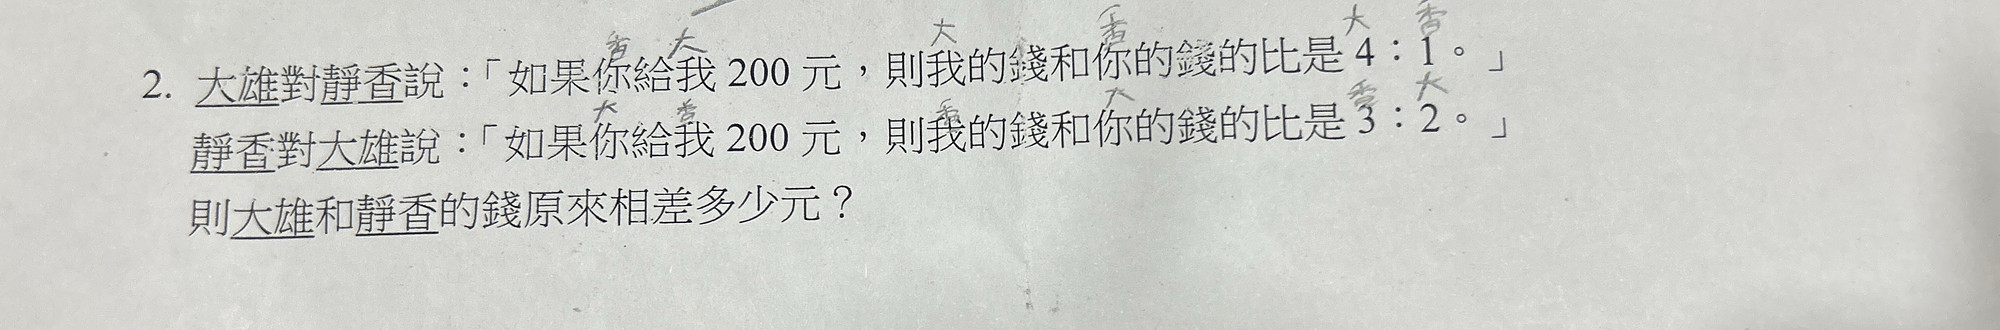 香 大 大 香 大 香
2. 大雄對靜香說：「如果你給我 200 元，則我的錢和你的錢的比是 4：1。」
大 香 香 大 香 大
靜香對大雄說：「如果你給我 200 元，則我的錢和你的錢的比是 3：2。」
則大雄和靜香的錢原來相差多少元？